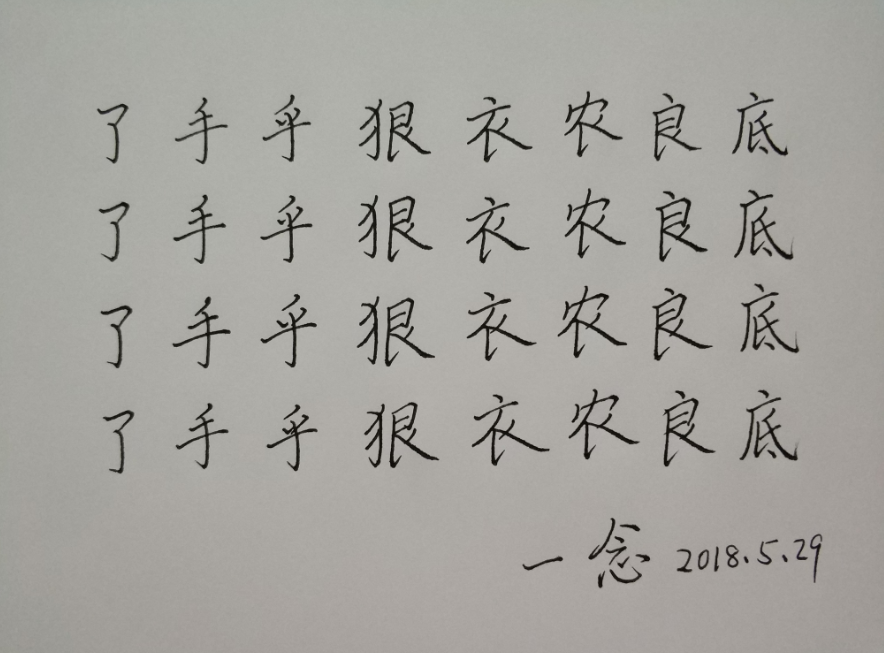 了手乎狠衣农良底
了手乎狠衣农良底
了手乎狠衣农良底
了手乎狠衣农良底
一念 2018.5.29